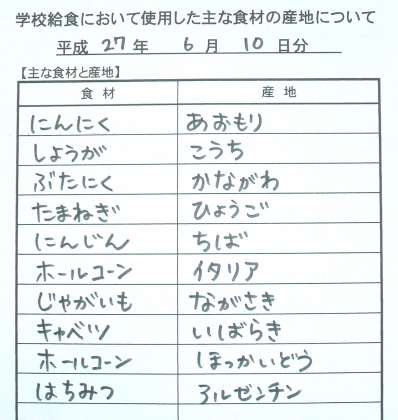 学校給食において使用した主な食材の産地について
平成 27 年 6 月 10 日分
【主な食材と産地】
食材 産地
にんにく あおもり
しょうが こうち
ぶたにく かながわ
たまねぎ ひょうご
にんじん ちば
ホールコーン イタリア
じゃがいも ながさき
キャベツ いばらき
ホールコーン ほっかいどう
はちみつ アルゼンチン